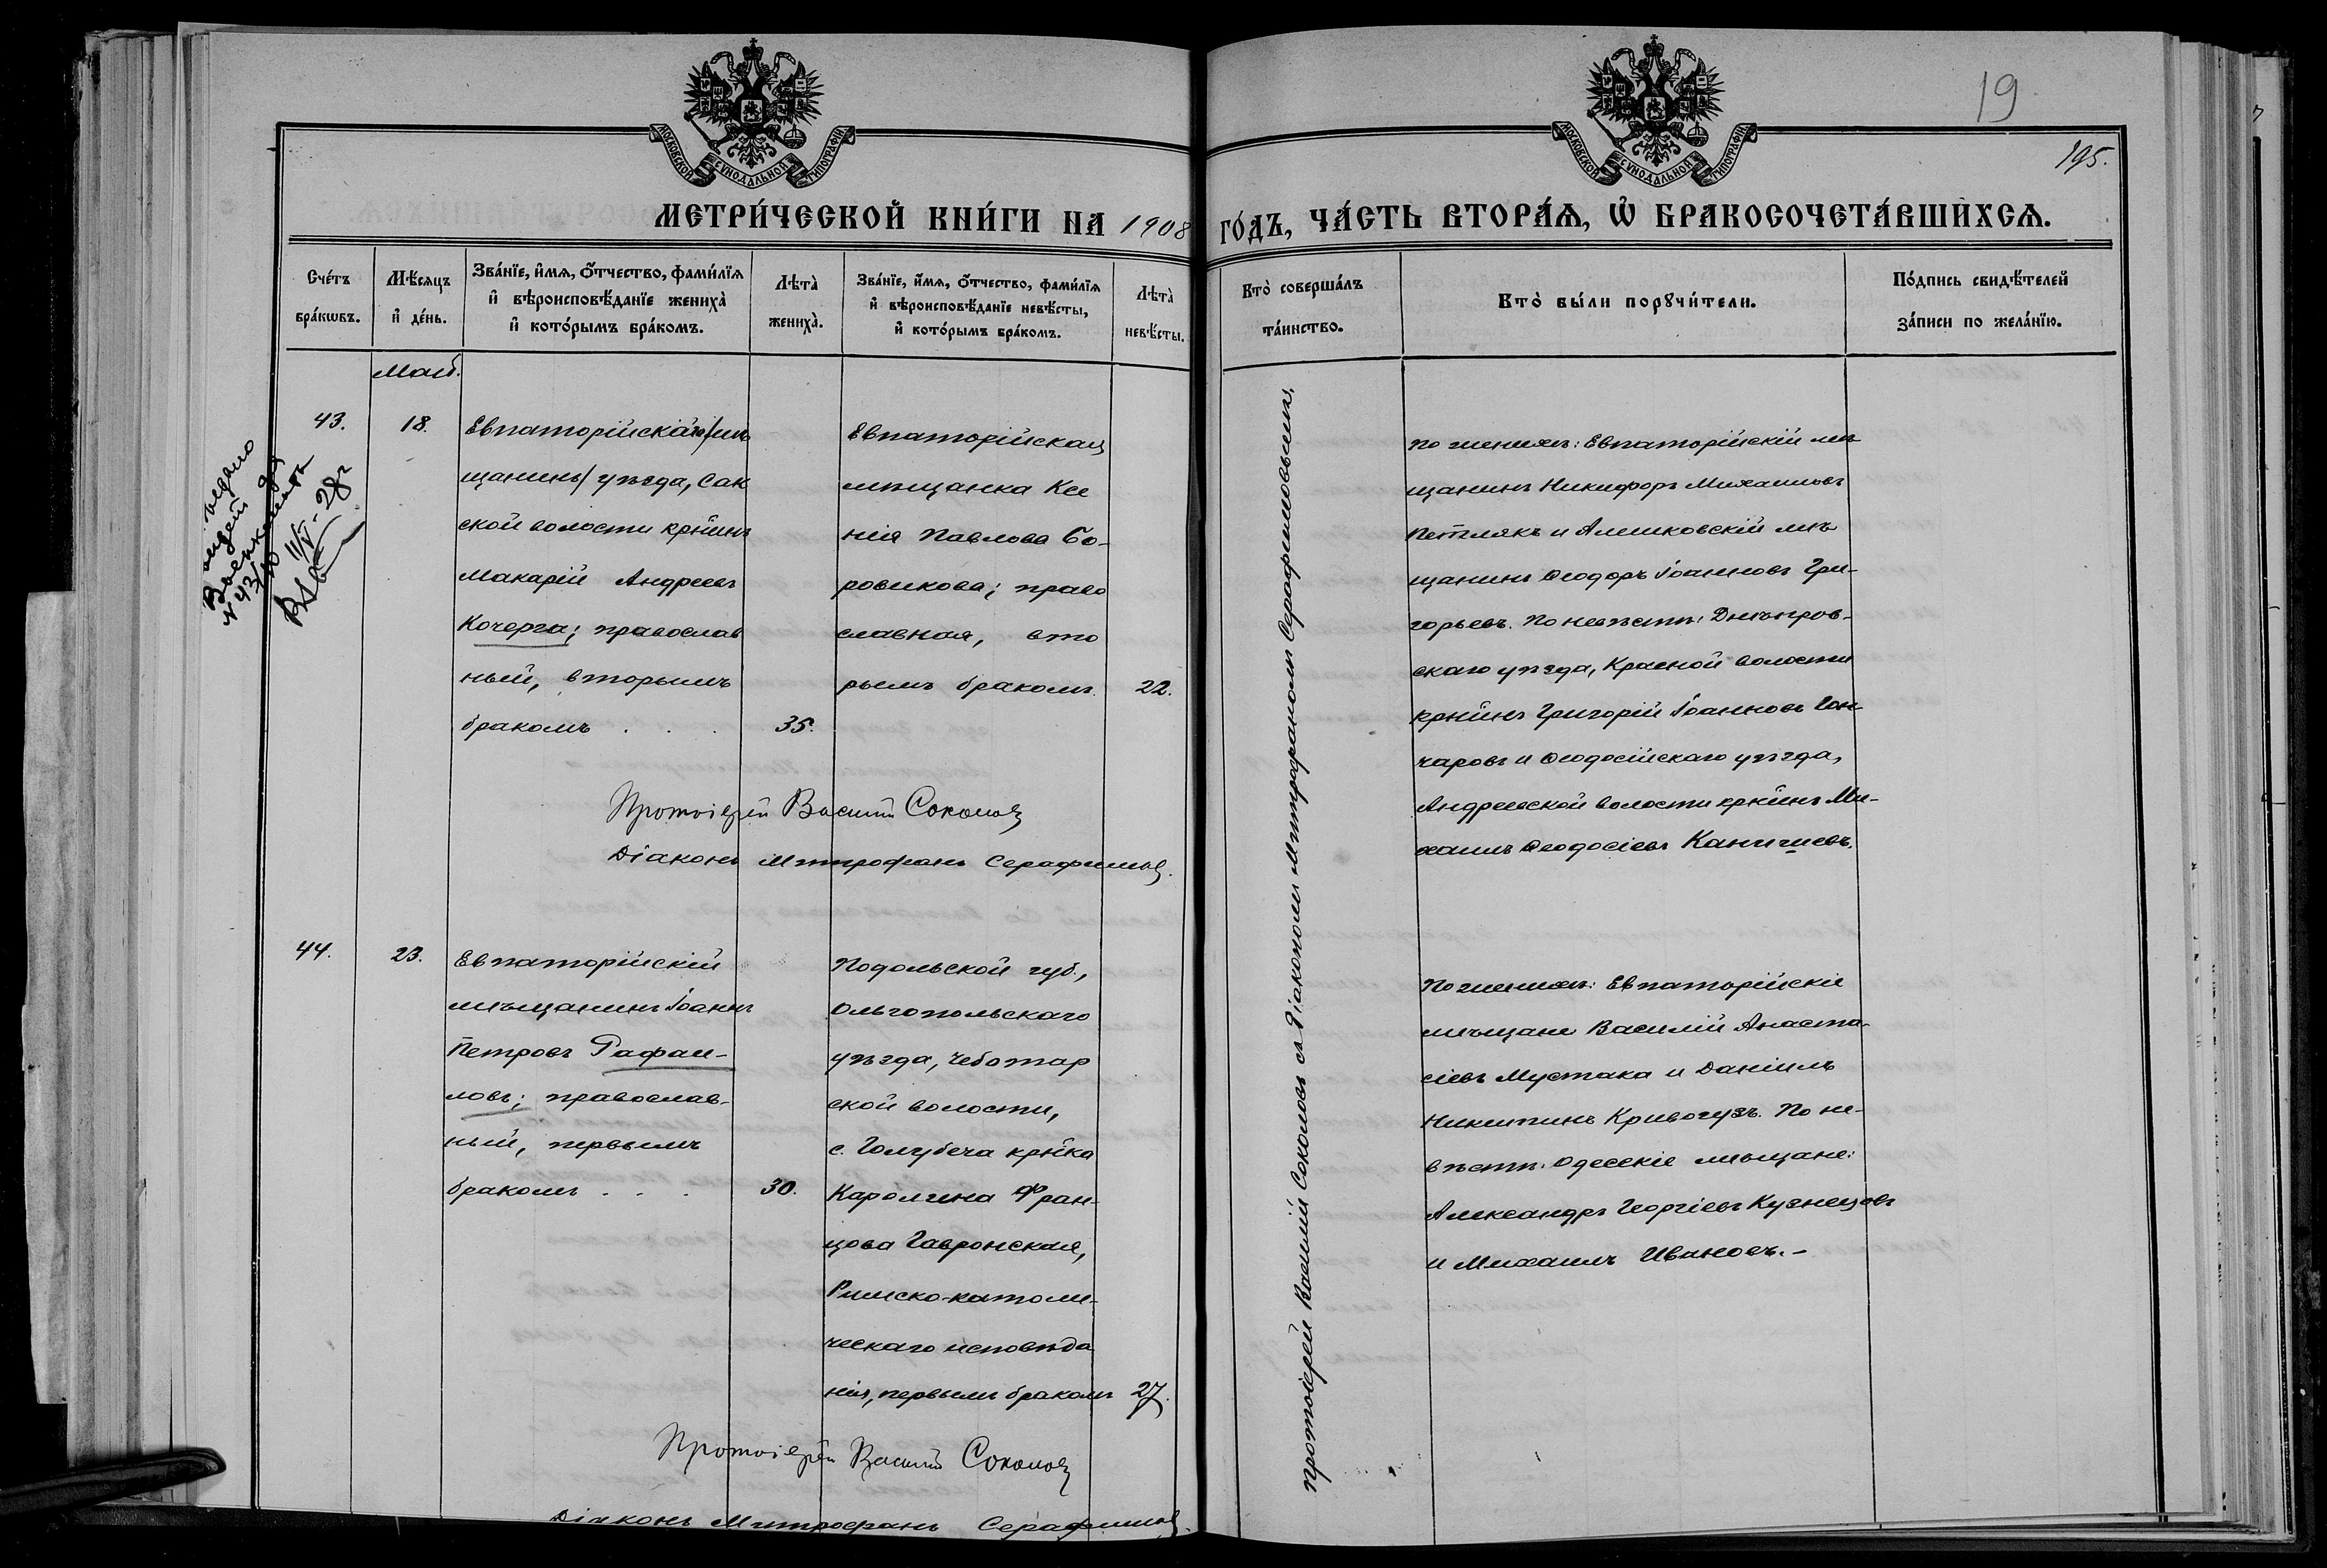 19
195.
МОСКОВСКОЙ СѴНОДАЛЬНОЙ ТИПОГРАФІИ
МОСКОВСКОЙ СѴНОДАЛЬНОЙ ТИПОГРАФІИ
МЕТРИ́ЧЕСКОЙ КНИ́ГИ НА 1908 ГО́ДЪ, ЧА́СТЬ ВТОРА́Ѧ, Ѽ БРАКОСОЧЕТА́ВШИХСѦ.
Сче́тъ
бра́кѡвъ.
Мѣ́сяцъ
и҆ де́нь.
Зва́нїе, и҆́мѧ, ѻ҆́тчество, фами́лїѧ
и҆ вѣроисповѣ́данїе жениха̀
и҆ кото́рымъ бра́комъ.
Лѣта̀
жениха̀.
Зва́нїе, и҆́мѧ, ѻ҆́тчество, фами́лїѧ
и҆ вѣроисповѣ́данїе невѣ́сты,
и҆ кото́рымъ бра́комъ.
Лѣта̀
невѣ́сты.
Кто̀ соверша́лъ
та́инство.
Кто̀ бы́ли порꙋчи́тели.
По́дпись свидѣ́телей
за́писи по жела́нїю.
Май.
43.
18.
Евпаторійскаго/мѣ
щанинъ/ уѣзда, Сак
ской волости кр–нинъ
Макарій Андреевъ
Кочерга; православ
ный, вторымъ
бракомъ . . .
35.
Евпаторійская
мѣщанка Ксе
нія Павлова Бо-
ровикова; право
славная, вто
рымъ бракомъ.
22.
Протоіерей Василій Соколовъ
Діаконъ Митрофанъ Серафимовъ.
По женихѣ: Евпаторійскій мѣ
щанинъ Никифоръ Михаиловъ
Петлякъ и Алешковскій мѣ
щанинъ Ѳеодоръ Іоанновъ Гри-
горьевъ. По невѣстѣ: Днѣпров-
скаго уѣзда, Красной волости
кр–нинъ Григорій Іоанновъ Гон-
чаровъ и Ѳеодосійскаго уѣзда,
Андреевской волости кр–нинъ Ми-
хаилъ Ѳеодосіевъ Каничевъ.
протоіерей Василій Соколовъ съ діакономъ Митрофаномъ Серафимовымъ.
№ 43
11/V - 28г
44.
23.
Евпаторійскій
мѣщанинъ Іоаннъ
Петровъ Рафаи-
ловъ; православ-
ный, первымъ
бракомъ . . .
30.
Подольской губ.,
Ольгопольскаго
уѣзда, Чеботар
ской волости,
с. Голубеча кр–нка
Каролина Фран-
цова Гавронская,
Римско-католи-
ческаго исповѣда
нія, первымъ бракомъ
27.
По женихѣ: Евпаторійскіе
мѣщане Василій Анаста-
сіевъ Мустака и Даніилъ
Никитинъ Кривогузъ. По не-
вѣстѣ: Одесскіе мѣщане:
Александръ Георгіевъ Кузнецовъ
и Михаилъ Ивановъ.–
Протоіерей Василій Соколовъ
Діаконъ Митрофанъ Серафимовъ.